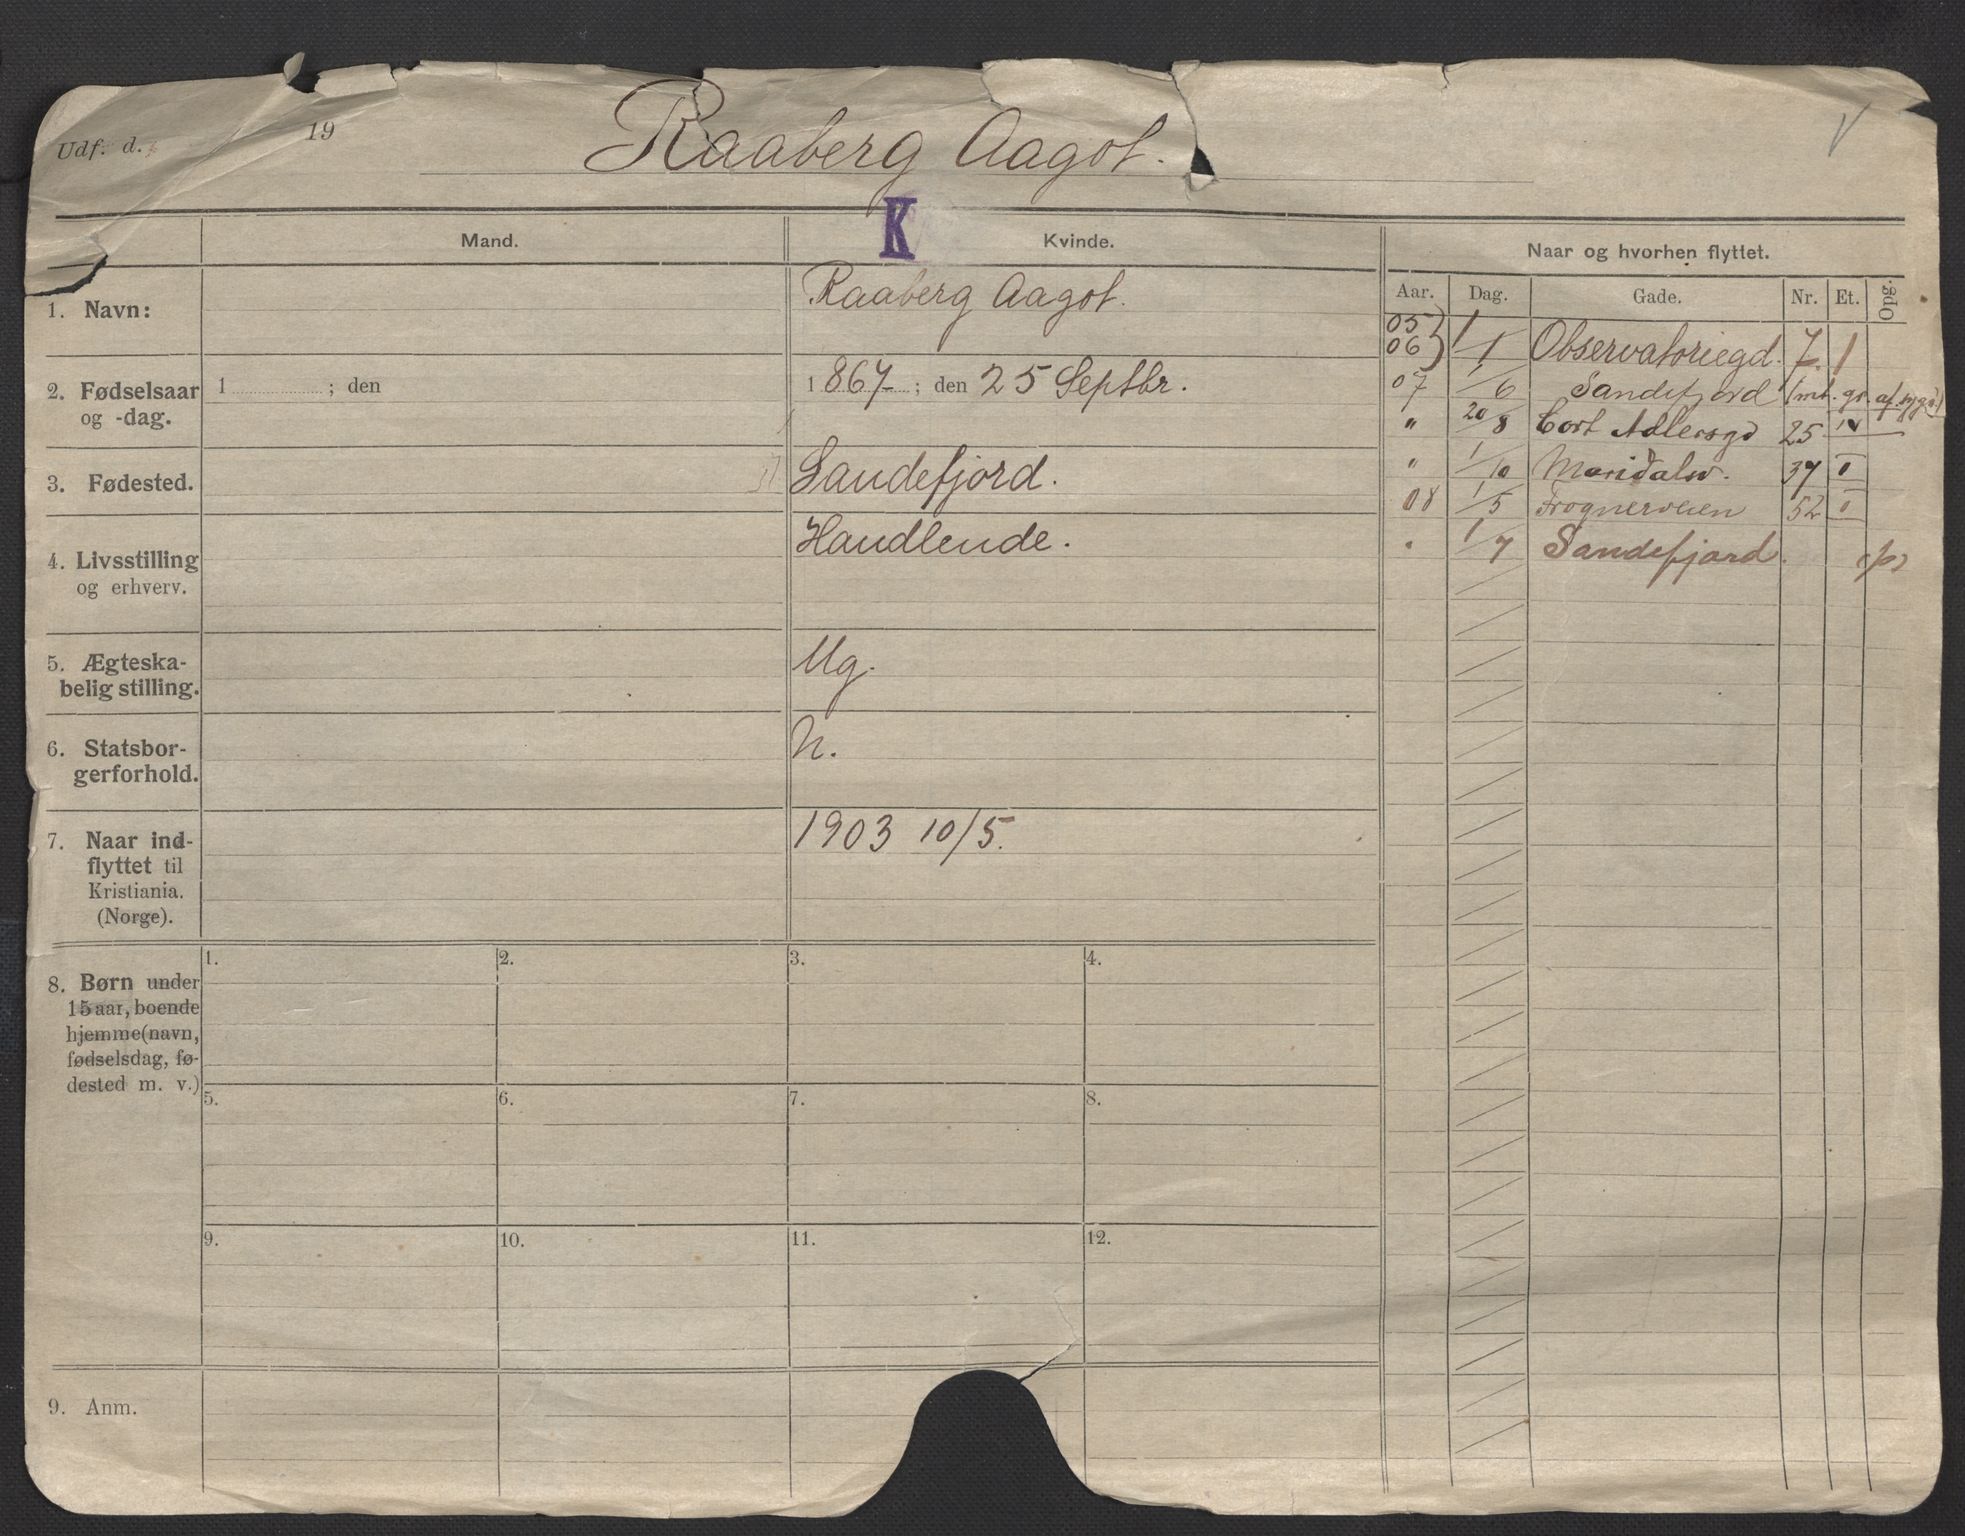 Udf. d. 19 Raaberg Aagot.
K
Mand. Kvinde. Naar og hvorhen flyttet.
Aar. Dag. Gade. Nr. Et. Opg.
1. Navn: Raaberg Aagot.
2. Fødselsaar og -dag. 1 ; den 1867 ; den 25 Septbr.
3. Fødested. Sandefjord.
4. Livsstilling og erhverv. Handlende.
5. Ægteska-
belig stilling. Ug.
6. Statsbor-
gerforhold. N.
7. Naar ind-
flyttet til
Kristiania.
(Norge). 1903 10/5.
05
06 } 1/1 Observatoriegd. 7 1
07 1/6 Sandefjord (mt. gr. af
" 20/8 Cort Adlersgd 25
" 1/10 Maridalsv. 37 II
08 1/5 Frognerveien 52 II
" 1/7 Sandefjord. (p)
8. Børn under
15 aar, boende
hjemme (navn,
fødselsdag, fø-
dested m. v.)
1. 2. 3. 4.
5. 6. 7. 8.
9. 10. 11. 12.
9. Anm.